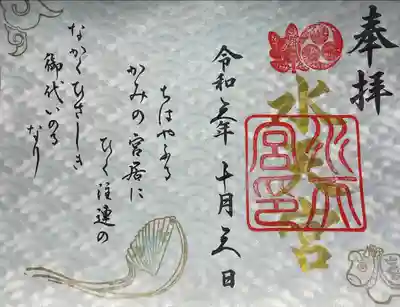 奉拝
水天宮
水天宮印
令和三年十月三日
ちはやふる
かみの宮居に
ひく注連の
なかくひさしき
御代いのる
なり